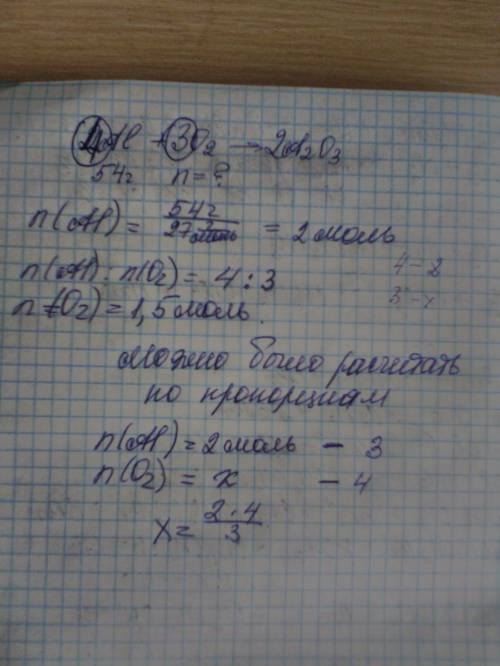 4Al + 3O₂ → 2Al₂O₃
54г n = ?
n(Al) = 54г / 27 г/моль = 2 моль
n(Al) : n(O₂) = 4 : 3
4 – 2
3 – x
n(O₂) = 1,5 моль.
Можно было расчитать
по пропорциям
n(Al) = 2 моль – 3
n(O₂) = x – 4
x = 2·4 / 3